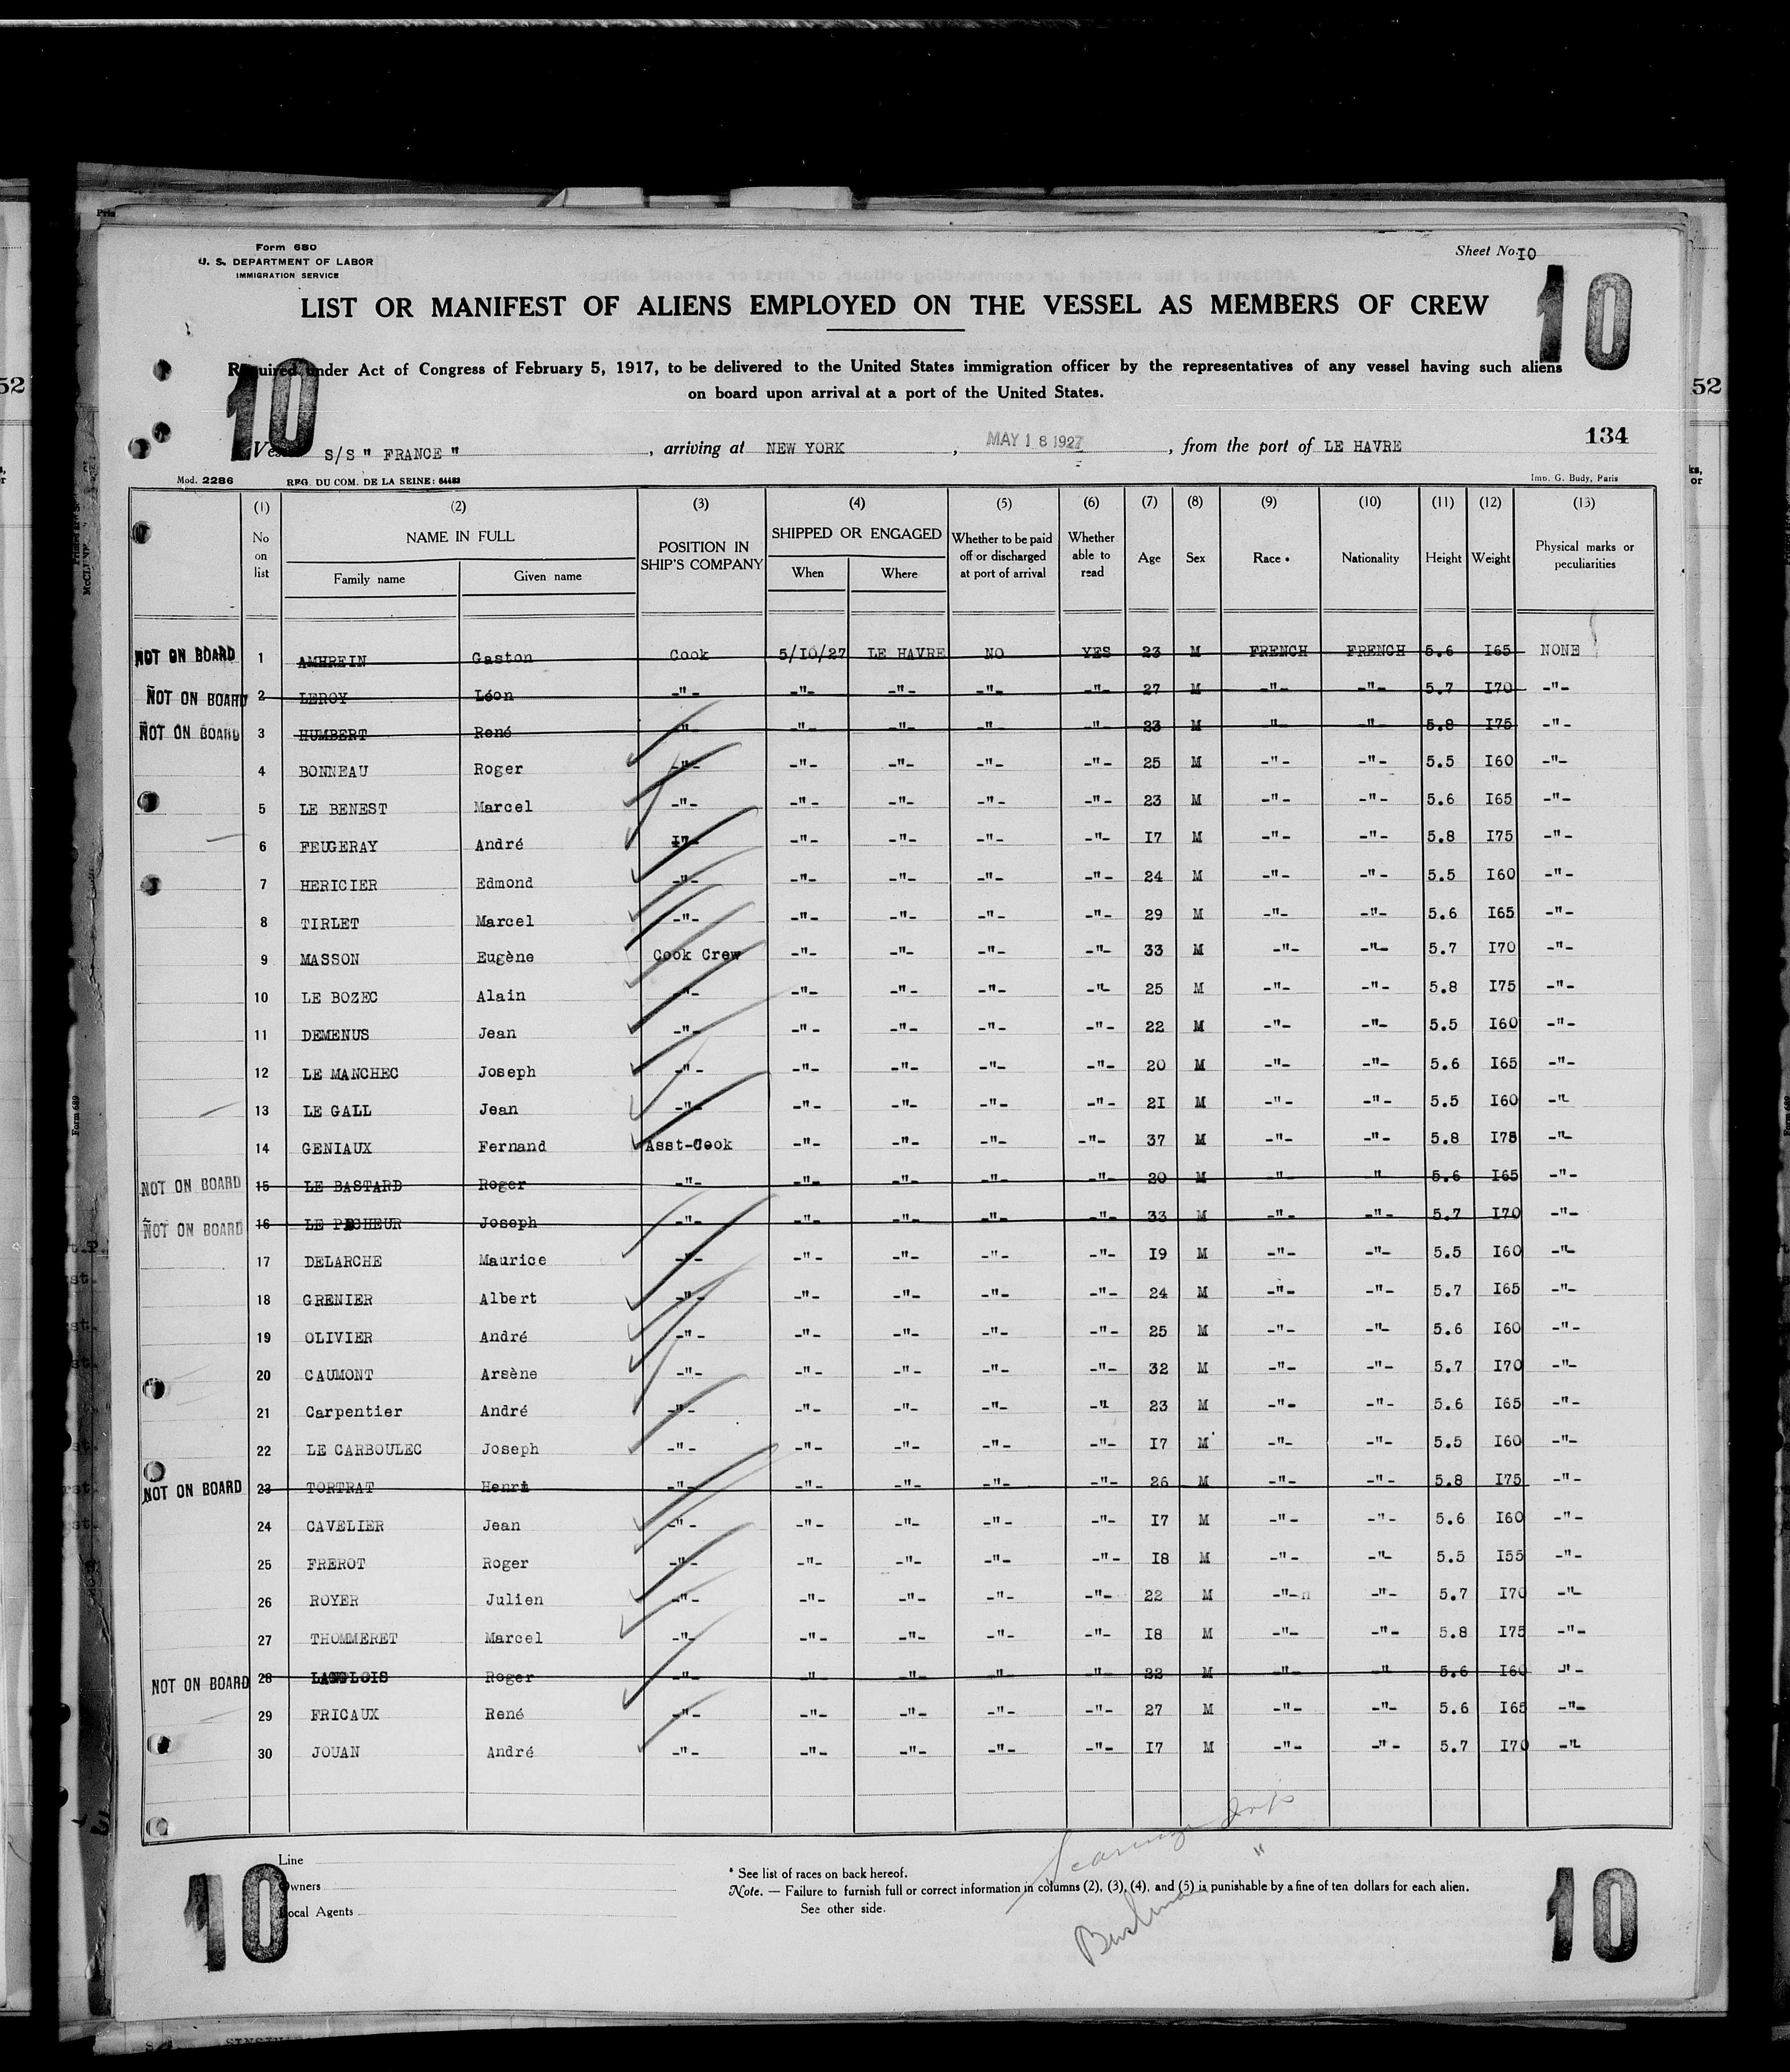 Form 680
U. S. DEPARTMENT OF LABOR
IMMIGRATION SERVICE
Sheet No. 10
10
10
LIST OR MANIFEST OF ALIENS EMPLOYED ON THE VESSEL AS MEMBERS OF CREW
Required under Act of Congress of February 5, 1917, to be delivered to the United States immigration officer by the representatives of any vessel having such aliens
on board upon arrival at a port of the United States.
52
52
134
Vessel S/S " FRANCE " , arriving at NEW YORK , MAY 18 1927 , from the port of LE HAVRE
Mod. 2286 REG. DU COM. DE LA SEINE: 64483 Imp. G. Budy, Paris
(1) No on list (2) NAME IN FULL Family name Given name (3) POSITION IN SHIP'S COMPANY (4) SHIPPED OR ENGAGED When Where (5) Whether to be paid off or discharged at port of arrival (6) Whether able to read (7) Age (8) Sex (9) Race * (10) Nationality (11) Height (12) Weight (13) Physical marks or peculiarities
NOT ON BOARD 1 AMHREIN Gaston Cook 5/10/27 LE HAVRE NO YES 23 M FRENCH FRENCH 5.6 I65 NONE
NOT ON BOARD 2 LEROY Léon -"- -"- -"- -"- -"- 27 M -"- -"- 5.7 I70 -"-
NOT ON BOARD 3 HUMBERT René -"- -"- -"- -"- -"- 23 M -"- -"- 5.8 I75 -"-
4 BONNEAU Roger -"- -"- -"- -"- -"- 25 M -"- -"- 5.5 I60 -"-
5 LE BENEST Marcel -"- -"- -"- -"- -"- 23 M -"- -"- 5.6 I65 -"-
6 FEUGERAY André -"- -"- -"- -"- -"- I7 M -"- -"- 5.8 I75 -"-
7 HERICIER Edmond -"- -"- -"- -"- -"- 24 M -"- -"- 5.5 I60 -"-
8 TIRLET Marcel -"- -"- -"- -"- -"- 29 M -"- -"- 5.6 I65 -"-
9 MASSON Eugène Cook Crew -"- -"- -"- -"- 33 M -"- -"- 5.7 I70 -"-
10 LE BOZEC Alain -"- -"- -"- -"- -"- 25 M -"- -"- 5.8 I75 -"-
11 DEMENUS Jean -"- -"- -"- -"- -"- 22 M -"- -"- 5.5 I60 -"-
12 LE MANCHEC Joseph -"- -"- -"- -"- -"- 20 M -"- -"- 5.6 I65 -"-
13 LE GALL Jean -"- -"- -"- -"- -"- 2I M -"- -"- 5.5 I60 -"-
14 GENIAUX Fernand Asst-Cook -"- -"- -"- -"- 37 M -"- -"- 5.8 I75 -"-
NOT ON BOARD 15 LE BASTARD Roger -"- -"- -"- -"- -"- 20 M -"- -"- 5.6 I65 -"-
NOT ON BOARD 16 LE PECHEUR Joseph -"- -"- -"- -"- -"- 33 M -"- -"- 5.7 I70 -"-
17 DELARCHE Maurice -"- -"- -"- -"- -"- I9 M -"- -"- 5.5 I60 -"-
18 GRENIER Albert -"- -"- -"- -"- -"- 24 M -"- -"- 5.7 I65 -"-
19 OLIVIER André -"- -"- -"- -"- -"- 25 M -"- -"- 5.6 I60 -"-
20 CAUMONT Arsène -"- -"- -"- -"- -"- 32 M -"- -"- 5.7 I70 -"-
21 Carpentier André -"- -"- -"- -"- -"- 23 M -"- -"- 5.6 I65 -"-
22 LE CARBOULEC Joseph -"- -"- -"- -"- -"- I7 M -"- -"- 5.5 I60 -"-
NOT ON BOARD 23 TORTRAT Henri -"- -"- -"- -"- -"- 26 M -"- -"- 5.8 I75 -"-
24 CAVELIER Jean -"- -"- -"- -"- -"- I7 M -"- -"- 5.6 I60 -"-
25 FREROT Roger -"- -"- -"- -"- -"- I8 M -"- -"- 5.5 I55 -"-
26 ROYER Julien -"- -"- -"- -"- -"- 22 M -"- -"- 5.7 I70 -"-
27 THOMMERET Marcel -"- -"- -"- -"- -"- I8 M -"- -"- 5.8 I75 -"-
NOT ON BOARD 28 LANGLOIS Roger -"- -"- -"- -"- -"- 22 M -"- -"- 5.6 I60 -"-
29 FRICAUX René -"- -"- -"- -"- -"- 27 M -"- -"- 5.6 I65 -"-
30 JOUAN André -"- -"- -"- -"- -"- I7 M -"- -"- 5.7 I70 -"-
Line
Owners
Local Agents
* See list of races on back hereof.
Note. — Failure to furnish full or correct information in columns (2), (3), (4), and (5) is punishable by a fine of ten dollars for each alien.
See other side.
10
10